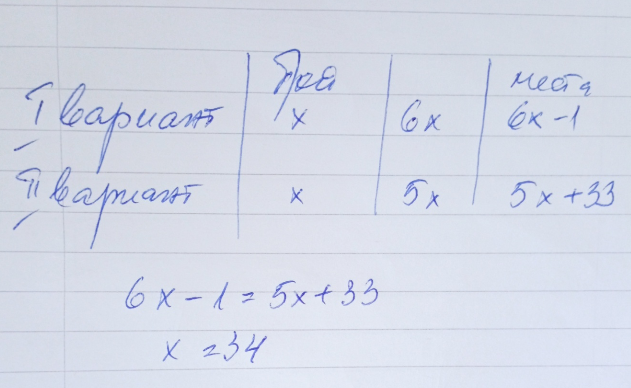 Брой места
I вариант x 6x 6x-1
II вариант x 5x 5x+33
6x-1=5x+33
x=34